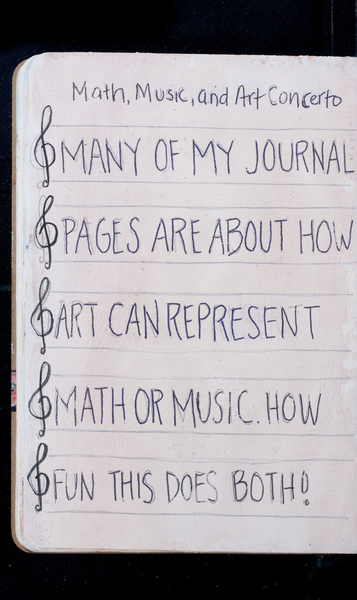 Math, Music, and Art Concerto
MANY OF MY JOURNAL
PAGES ARE ABOUT HOW
ART CAN REPRESENT
MATH OR MUSIC. HOW
FUN THIS DOES BOTH!